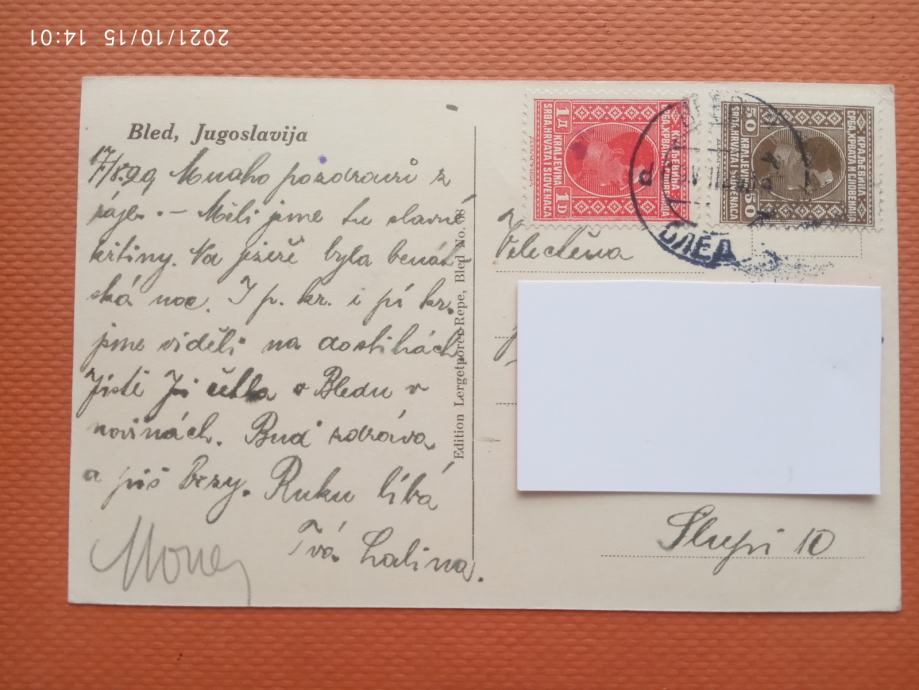 2021/10/15 14:01
Bled, Jugoslavija
17/8.29 Mnoho pozdravů z
ráje. – Měli jsme tu slavné
křtiny. Na jezeře byla benát
ská noc. I p. kr. i pí kr.
jsme viděli na dostihách
Jistě Jsi četla o Bledu v
novinách. Buď zdráva
a piš brzy. Ruku líbá
Tvá Lalina.
Edition Lergetporer-Repe, Bled No.
1 Д 
КРАЉЕВИНА
СРБА, ХРВАТА
KRALJEVINA
SRBA, HRVATA
I SLOVENACA
1 D
50
КРАЉЕВИНА
СРБА, ХРВАТА И СЛОВЕНАЦА
KRALJEVINA
SRBA, HRVATA I SLOVENACA
50
БЛЕД
Velectěna
Slupi 10